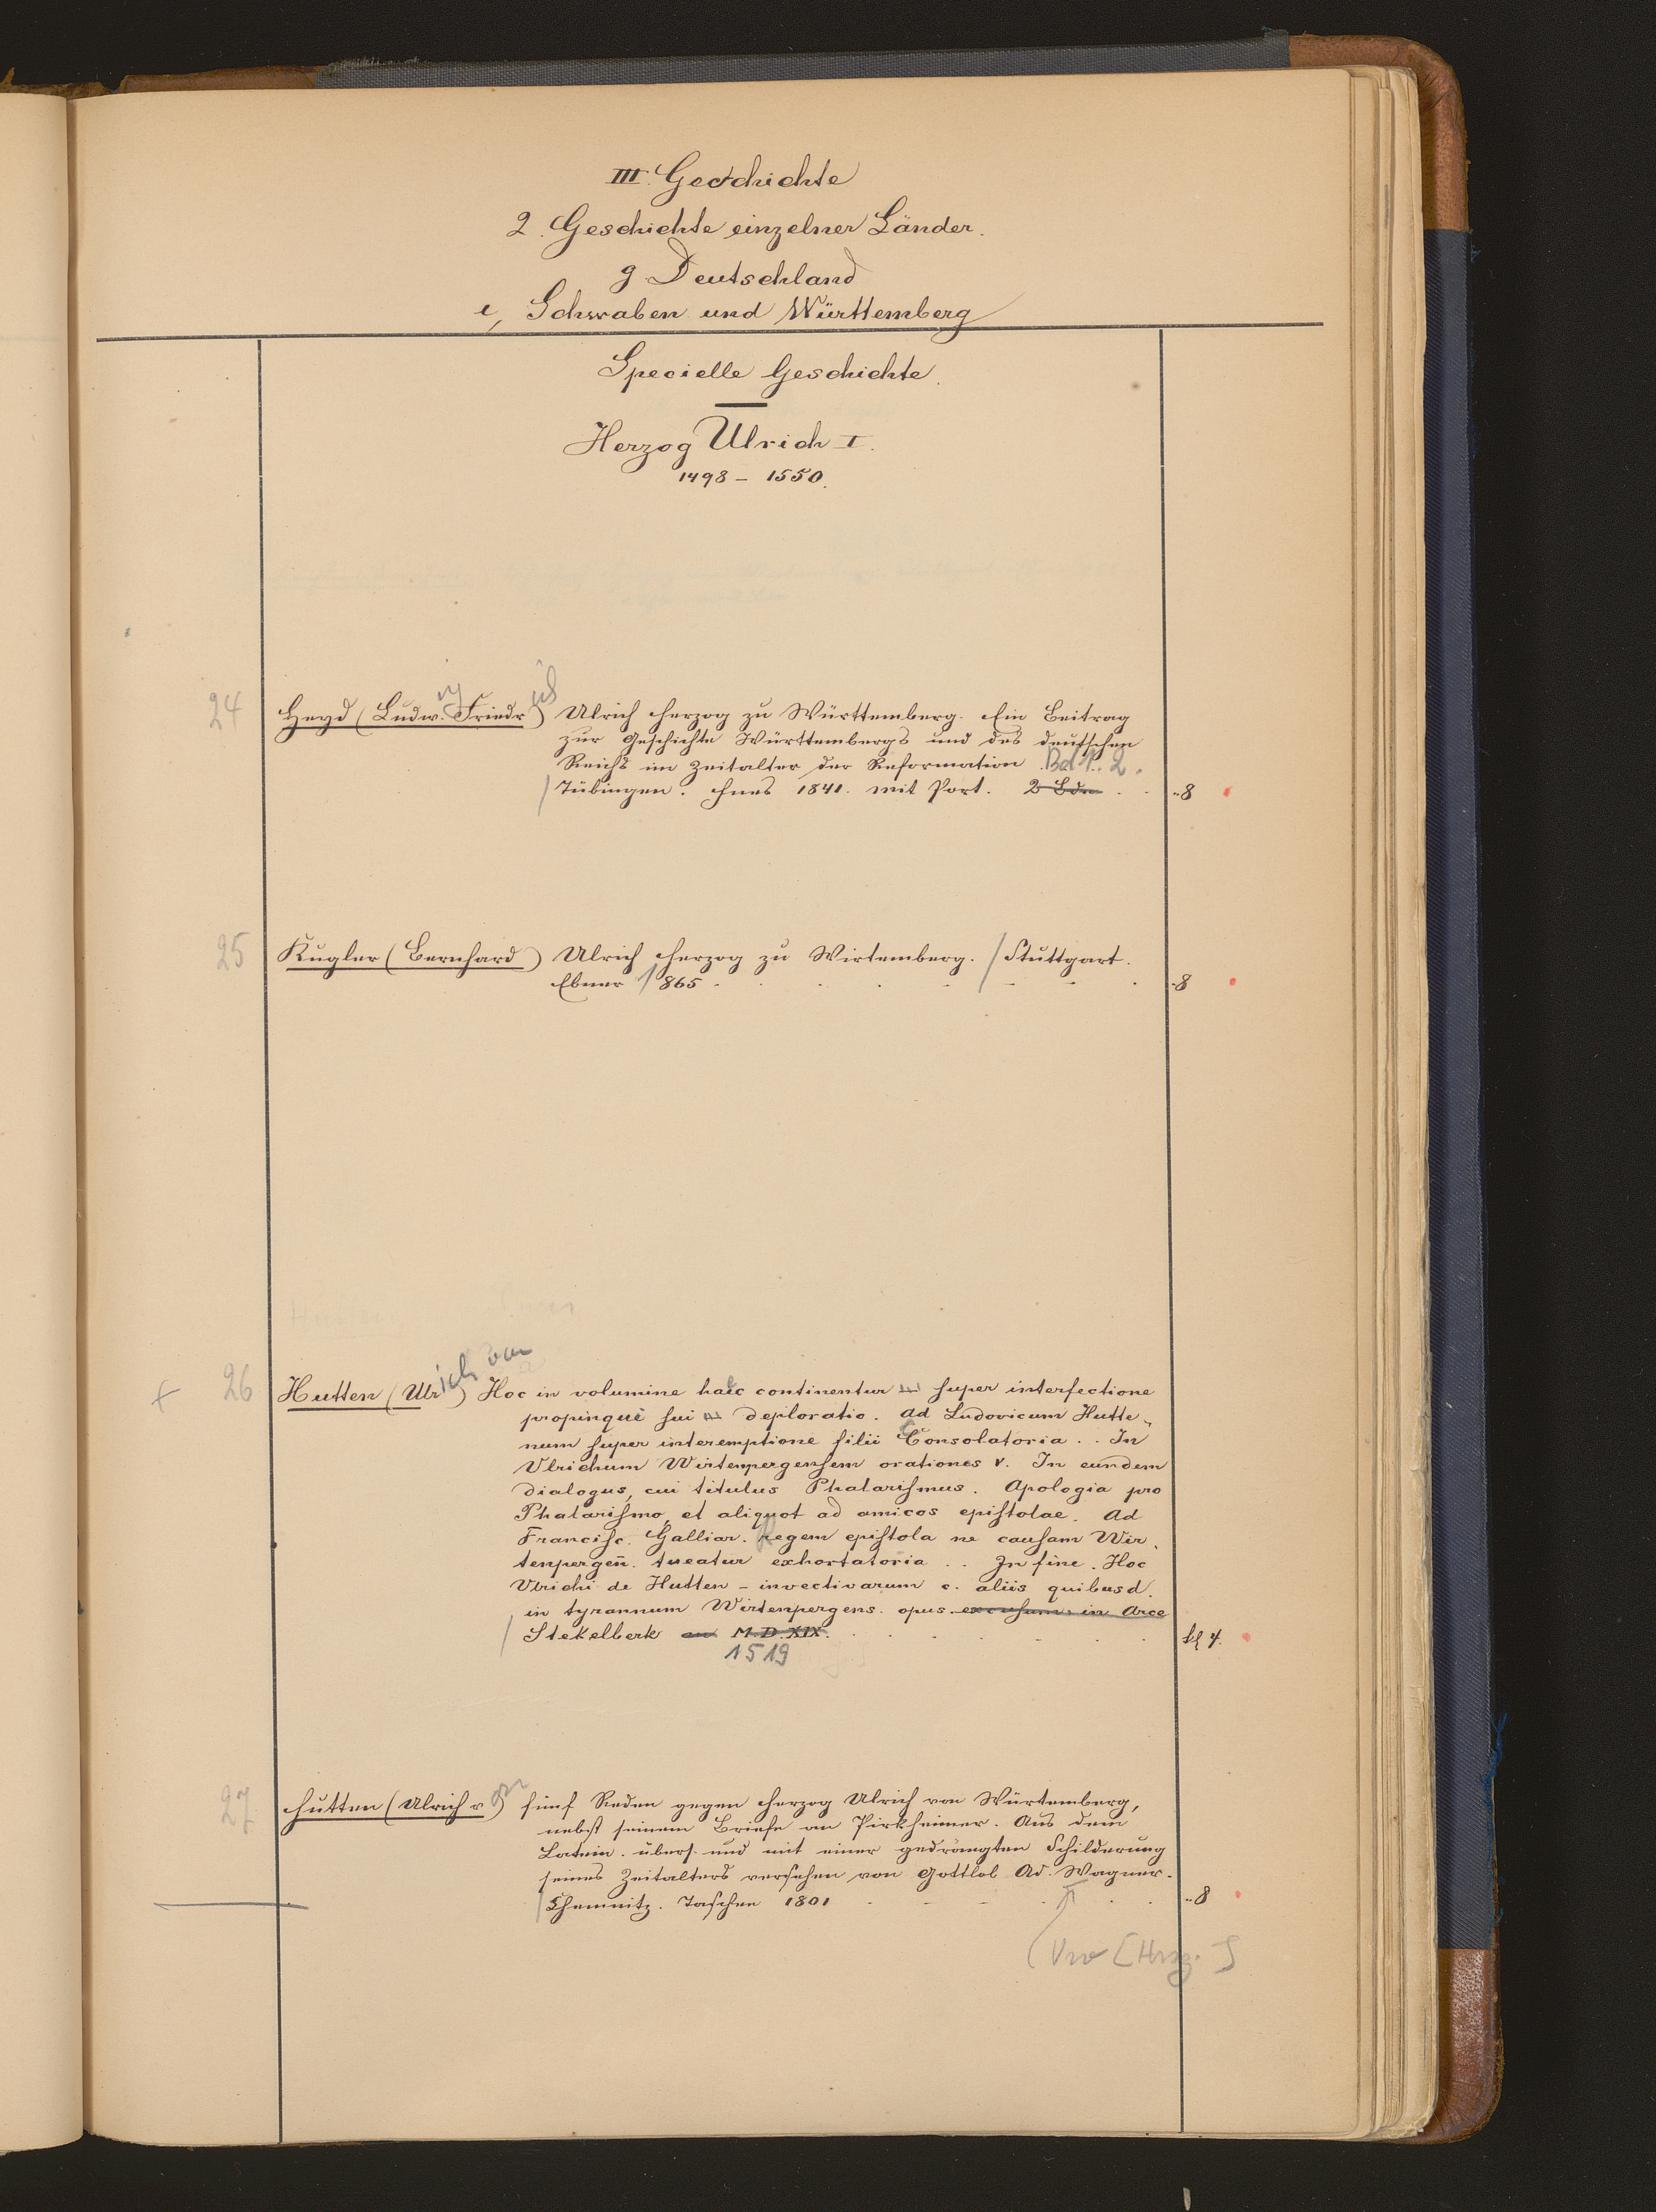 III. Geschichte
2. Geschichte einzelner Länder.
g. Deutschland
e, Schwaben und Württemberg
Specielle Geschichte.
Herzog Ulrich I.
1498 – 1550.
24 Heyd (Ludw. Friedr) Ulrich Herzog zu Württemberg. Ein Beitrag
zur Geschichte Württembergs und des deutschen
Reichs im Zeitalter der Reformation. Bd 1. 2.
Tübingen. Fues 1841. mit Port. 2 Bde . . 8
25 Kugler (Bernhard) Ulrich Herzog zu Wirtemberg. / Stuttgart.
Ebner 1865 . . . . . . . 8
+ 26 Hutten (Ulrich von) Hoc in volumine haec continentur super interfectione
propinqui sui deploratio. Ad Ludovicum Hutte„
num super interemptione filii Consolatoria . . In
Vlrichum Wirtenpergensem orationes V. In eundem
dialogus, cui titulus Phalarismus. Apologia pro
Phalarismo, et aliquot ad amicos epistolae. Ad
Francisc. Galliar. Regem epistola ne causam Wir„
tenpergen̄. tueatur exhortatoria . . In fine. Hoc
Vlrichi de Hutten – invectivarum c. aliis quibusd.
in tyrannum Wirtenpergens. opus. excusum in Arce
/ Stekelberk an M.D.XIX. . . . . . . kl 4.
1519
27 Hutten (Ulrich von) fünf Reden gegen Herzog Ulrich von Würtemberg,
nebst seinem Briefe an Pirkheimer. Aus dem
Latein. übers. und mit einer gedrängten Schilderung
seines Zeitalters versehen von Gottlob Ad. Wagner.
/ Chemnitz. Tasche 1801 . . . . . . 8
[Hrsg.]